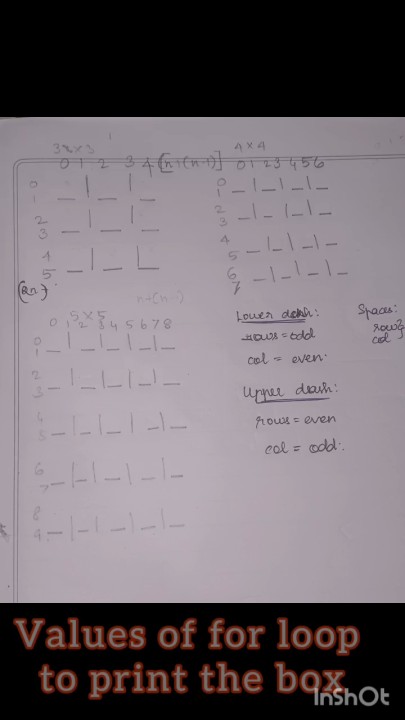 3x3
0 1 2 3 4 [n+(n-1)]
0
1
2
3
4
5
(2n)
4x4
0 1 2 3 4 5 6
0
1
2
3
4
5
6
7
n+(n-1)
5x5
0 1 2 3 4 5 6 7 8
0
1
2
3
4
5
6
7
8
9
Lower dash:
rows = odd
col = even.
Upper dash:
rows = even
col = odd.
Spaces:
rows
col
Values of for loop
to print the box
InShOt